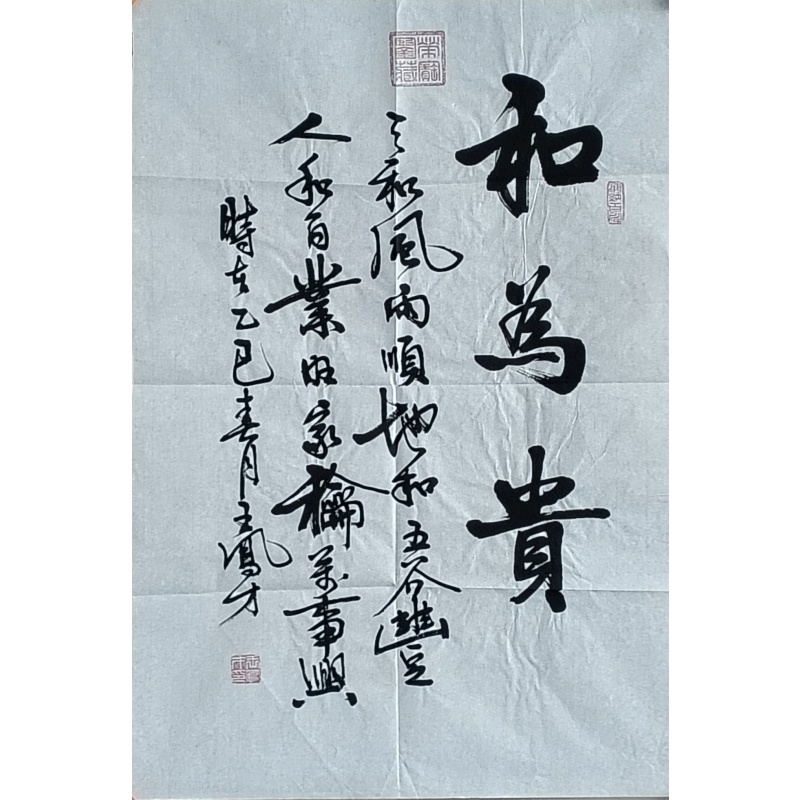 榮寶齋藏
和為貴
天和風雨順地和五谷豐
人和百業旺家龢萬事興
時在乙巳春月王鳳才